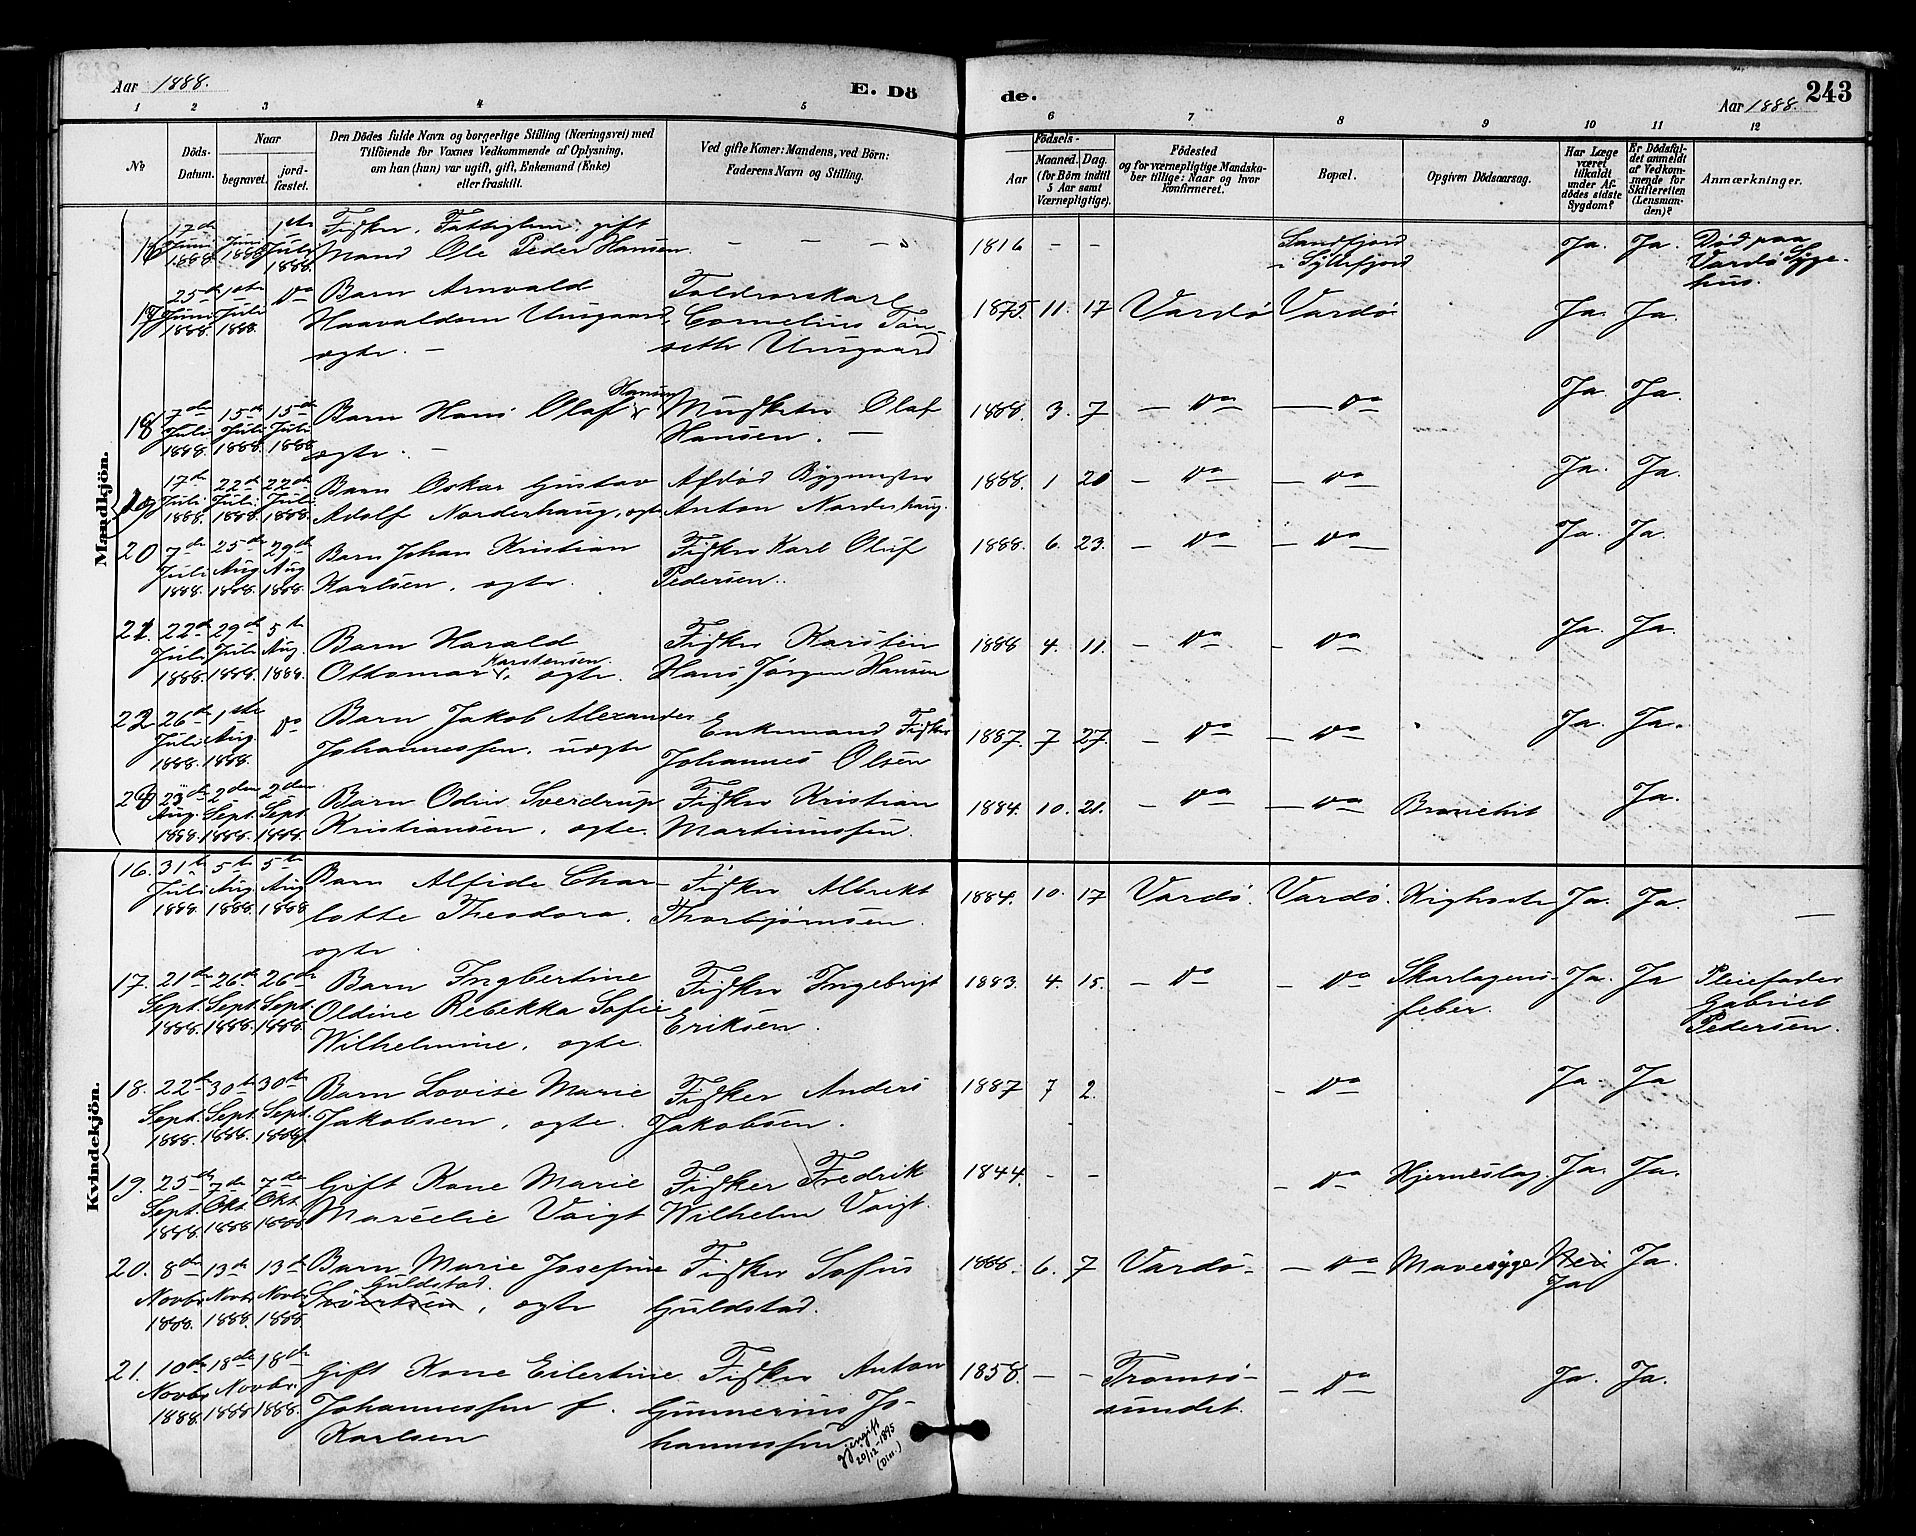 Aar 1888.
E. Döde.
243
Aar 1888.
1 2 3 4 5 6 7 8 9 10 11 12
No
Döds-Datum.
Naar
begravet.
jord-fæstet.
Den Dödes fulde Navn og borgerlige Stilling (Næringsvei) med
Tilföiende for Voxnes Vedkommende af Oplysning,
om han (hun) var ugift, gift, Enkemand (Enke)
eller fraskilt.
Ved gifte Koner: Mandens, ved Börn:
Faderens Navn og Stilling.
Födsels-
Aar
Maaned. Dag.
(for Börn indtil
5 Aar samt
Værnepligtige).
Födested
og for værnepligtige Mandska-
ber tillige: Naar og hvor
konfirmeret.
Bopæl.
Opgiven Dödsaarsag.
Har Læge
været
tilkaldt
under Af-
dödes sidste
Sygdom?
Er Dödsfal-
det anmeldt
af Vedkom-
mende for
Skifteretten
(Lensman-
den)?
Anmærkninger.
Mandkjön.
16 17de Juni 1888. Juni 1888 1ste Juli 1888. Fisker, Fattiglem, gift
Mand Ole Peder Hansen. – – –
1816 – – Sandfjord i Syltefjord Ja. Ja. Död paa Vardö Syge-hus.
17 25de Juni 1888 1ste Juli 1888. Do Barn Arnvald
Haavaldsen Unsgaard,
ægte. –
Toldrorskarl
Cornelius Tan-
seth Unsgaard
1875. 11. 17 Vardö Vardö. Ja. Ja.
18 7de Juli 1888. 15de Juli 1888. 15de Juli 1888 Barn Hans Olaf Hansen
ægte. –
Musketer Olaf
Hansen. –
1888. 3. 7 – Do – – Do – Ja. Ja.
19 17de Juli 1888. 22de Juli 1888. 22de Juli 1888. Barn Oskar Gustav
Adolf Norderhaug, ægte
Afdöd Bygmester
Anton Norderhaug.
1888. 1 20 – Do – – Do – Ja. Ja.
20 7de Juli 1888. 25de Aug 1888. 29de Aug 1888. Barn Johan Kristian
Karlsen, ægte.
Fisker Karl Oluf
Pedersen.
1888. 6. 23. – Do – – Do – Ja. Ja.
21. 22de Juli 1888. 29de Juli 1888. 5te Aug. 1888. Barn Harald
Ottomar Karstensen. ægte.
Fisker Karsten
Hans Jörgen Hansen
1888 4. 11. – Do – – Do – Ja. Ja.
22 26de Juli 1888. 1ste Aug. 1888. Do Barn Jakob Alexander
Johannessen, uægte
Enkemand Fisker
Johannes Olsen
1887. 7 27. – Do – – Do – Ja. Ja.
23de Aug. 1888. 2den Sept. 1888. 2den Sept. 1888. Barn Odin Sverdrup
Kristiansen, ægte.
Fisker Kristian
Martinussen.
1884. 10. 21. – Do – – Do – Bronchit Ja.
Kvindekjön.
16. 31te Juli 1888. 5te Aug. 1888. 5te Aug 1888 Barn Alfide Char-
lotte Theodora,
ægte.
Fisker Albrekt
Thorbjörnsen.
1884. 10. 17 Vardö. Vardö. Kighoste Ja. Ja. –
17. 21de Sept. 1888. 26de Sept. 1888. 26de Sept. 1888. Barn Ingbertine
Oldine Rebekka Sofie
Wilhelmine, ægte.
Fisker Ingebrigt
Eriksen.
1883. 4. 15. – Do – Do Skarlagens-
feber. Ja. Ja Pleiefader
Gabriel
Pedersen.
18. 22de Sept. 1888. 30te Sept. 1888. 30te Sept. 1888 Barn Lovise Marie
Jakobsen, ægte.
Fisker Anders
Jakobsen.
1887 7 2. – Do Ja. Ja
19. 25de Sept. 1888. 7de Okt. 1888 7de Okt. 1888 Gift Kone Marie
Marcelie Voigt
Fisker Fredrik
Wilhelm Voigt.
1844. – – – Do Hjerneslag. Ja. Ja.
20. 8de Novbr 1888. 13de Novbr. 1888. 13de Novbr. 1888. Barn Marie Josefine
Guldstad.
Sivertsen, ægte
Fisker Sofus
Guldstad.
1888. 6. 7 Vardö – Do – Mavesyge Nei Ja Ja.
21. 10de Novbr 1888. 18de Novbr. 1888 18de 1888. Gift Kone Eilertine
Johannessen f.
Karlsen
Fisker Anton
Gunnerius Jo-
hannessen
gjengift
20/12-1895
(Diss.)
1858. – – Tromsö-
sundet. – Do Ja. Ja.